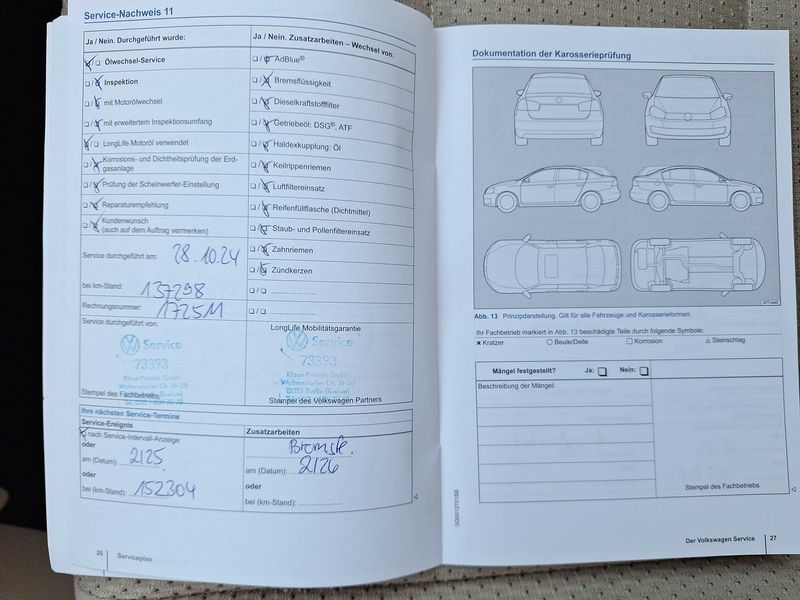 Service-Nachweis 11
Ja / Nein. Durchgeführt wurde:
☐ / ☐ Ölwechsel-Service
☐ / ☐ Inspektion
☐ / ☐ mit Motorölwechsel
☐ / ☐ mit erweitertem Inspektionsumfang
☐ / ☐ LongLife Motoröl verwendet
☐ / ☐ Korrosions- und Dichtheitsprüfung der Erd-
gasanlage
☐ / ☐ Prüfung der Scheinwerfer-Einstellung
☐ / ☐ Reparaturempfehlung
☐ / ☐ Kundenwunsch
(auch auf dem Auftrag vermerken)
Service durchgeführt am: 28.10.24
bei km-Stand: 137298
Rechnungsnummer: 1725M
Service durchgeführt von:
Service
73393
Stempel des Fachbetriebs
Ja / Nein. Zusatzarbeiten – Wechsel von:
☐ / ☐ AdBlue®
☐ / ☐ Bremsflüssigkeit
☐ / ☐ Dieselkraftstofffilter
☐ / ☐ Getriebeöl: DSG®, ATF
☐ / ☐ Haldexkupplung: Öl
☐ / ☐ Keilrippenriemen
☐ / ☐ Luftfiltereinsatz
☐ / ☐ Reifenfüllflasche (Dichtmittel)
☐ / ☐ Staub- und Pollenfiltereinsatz
☐ / ☐ Zahnriemen
☐ / ☐ Zündkerzen
☐ / ☐ ....................
☐ / ☐ ....................
LongLife Mobilitätsgarantie:
Service
73393
Stempel des Volkswagen Partners
Ihre nächsten Service-Termine
Service-Ereignis
nach Service-Intervall-Anzeige
oder
am (Datum): 2/25
oder
bei (km-Stand): 152304
Zusatzarbeiten
am (Datum): 2/26
oder
bei (km-Stand): ....................
26 Serviceplan
Dokumentation der Karosserieprüfung
Abb. 13 Prinzipdarstellung. Gilt für alle Fahrzeuge und Karosserieformen.
Ihr Fachbetrieb markiert in Abb. 13 beschädigte Teile durch folgende Symbole:
× Kratzer ○ Beule/Delle □ Korrosion △ Steinschlag
Mängel festgestellt? Ja: ☐ Nein: ☐
Beschreibung der Mängel:
Stempel des Fachbetriebs
Der Volkswagen Service 27